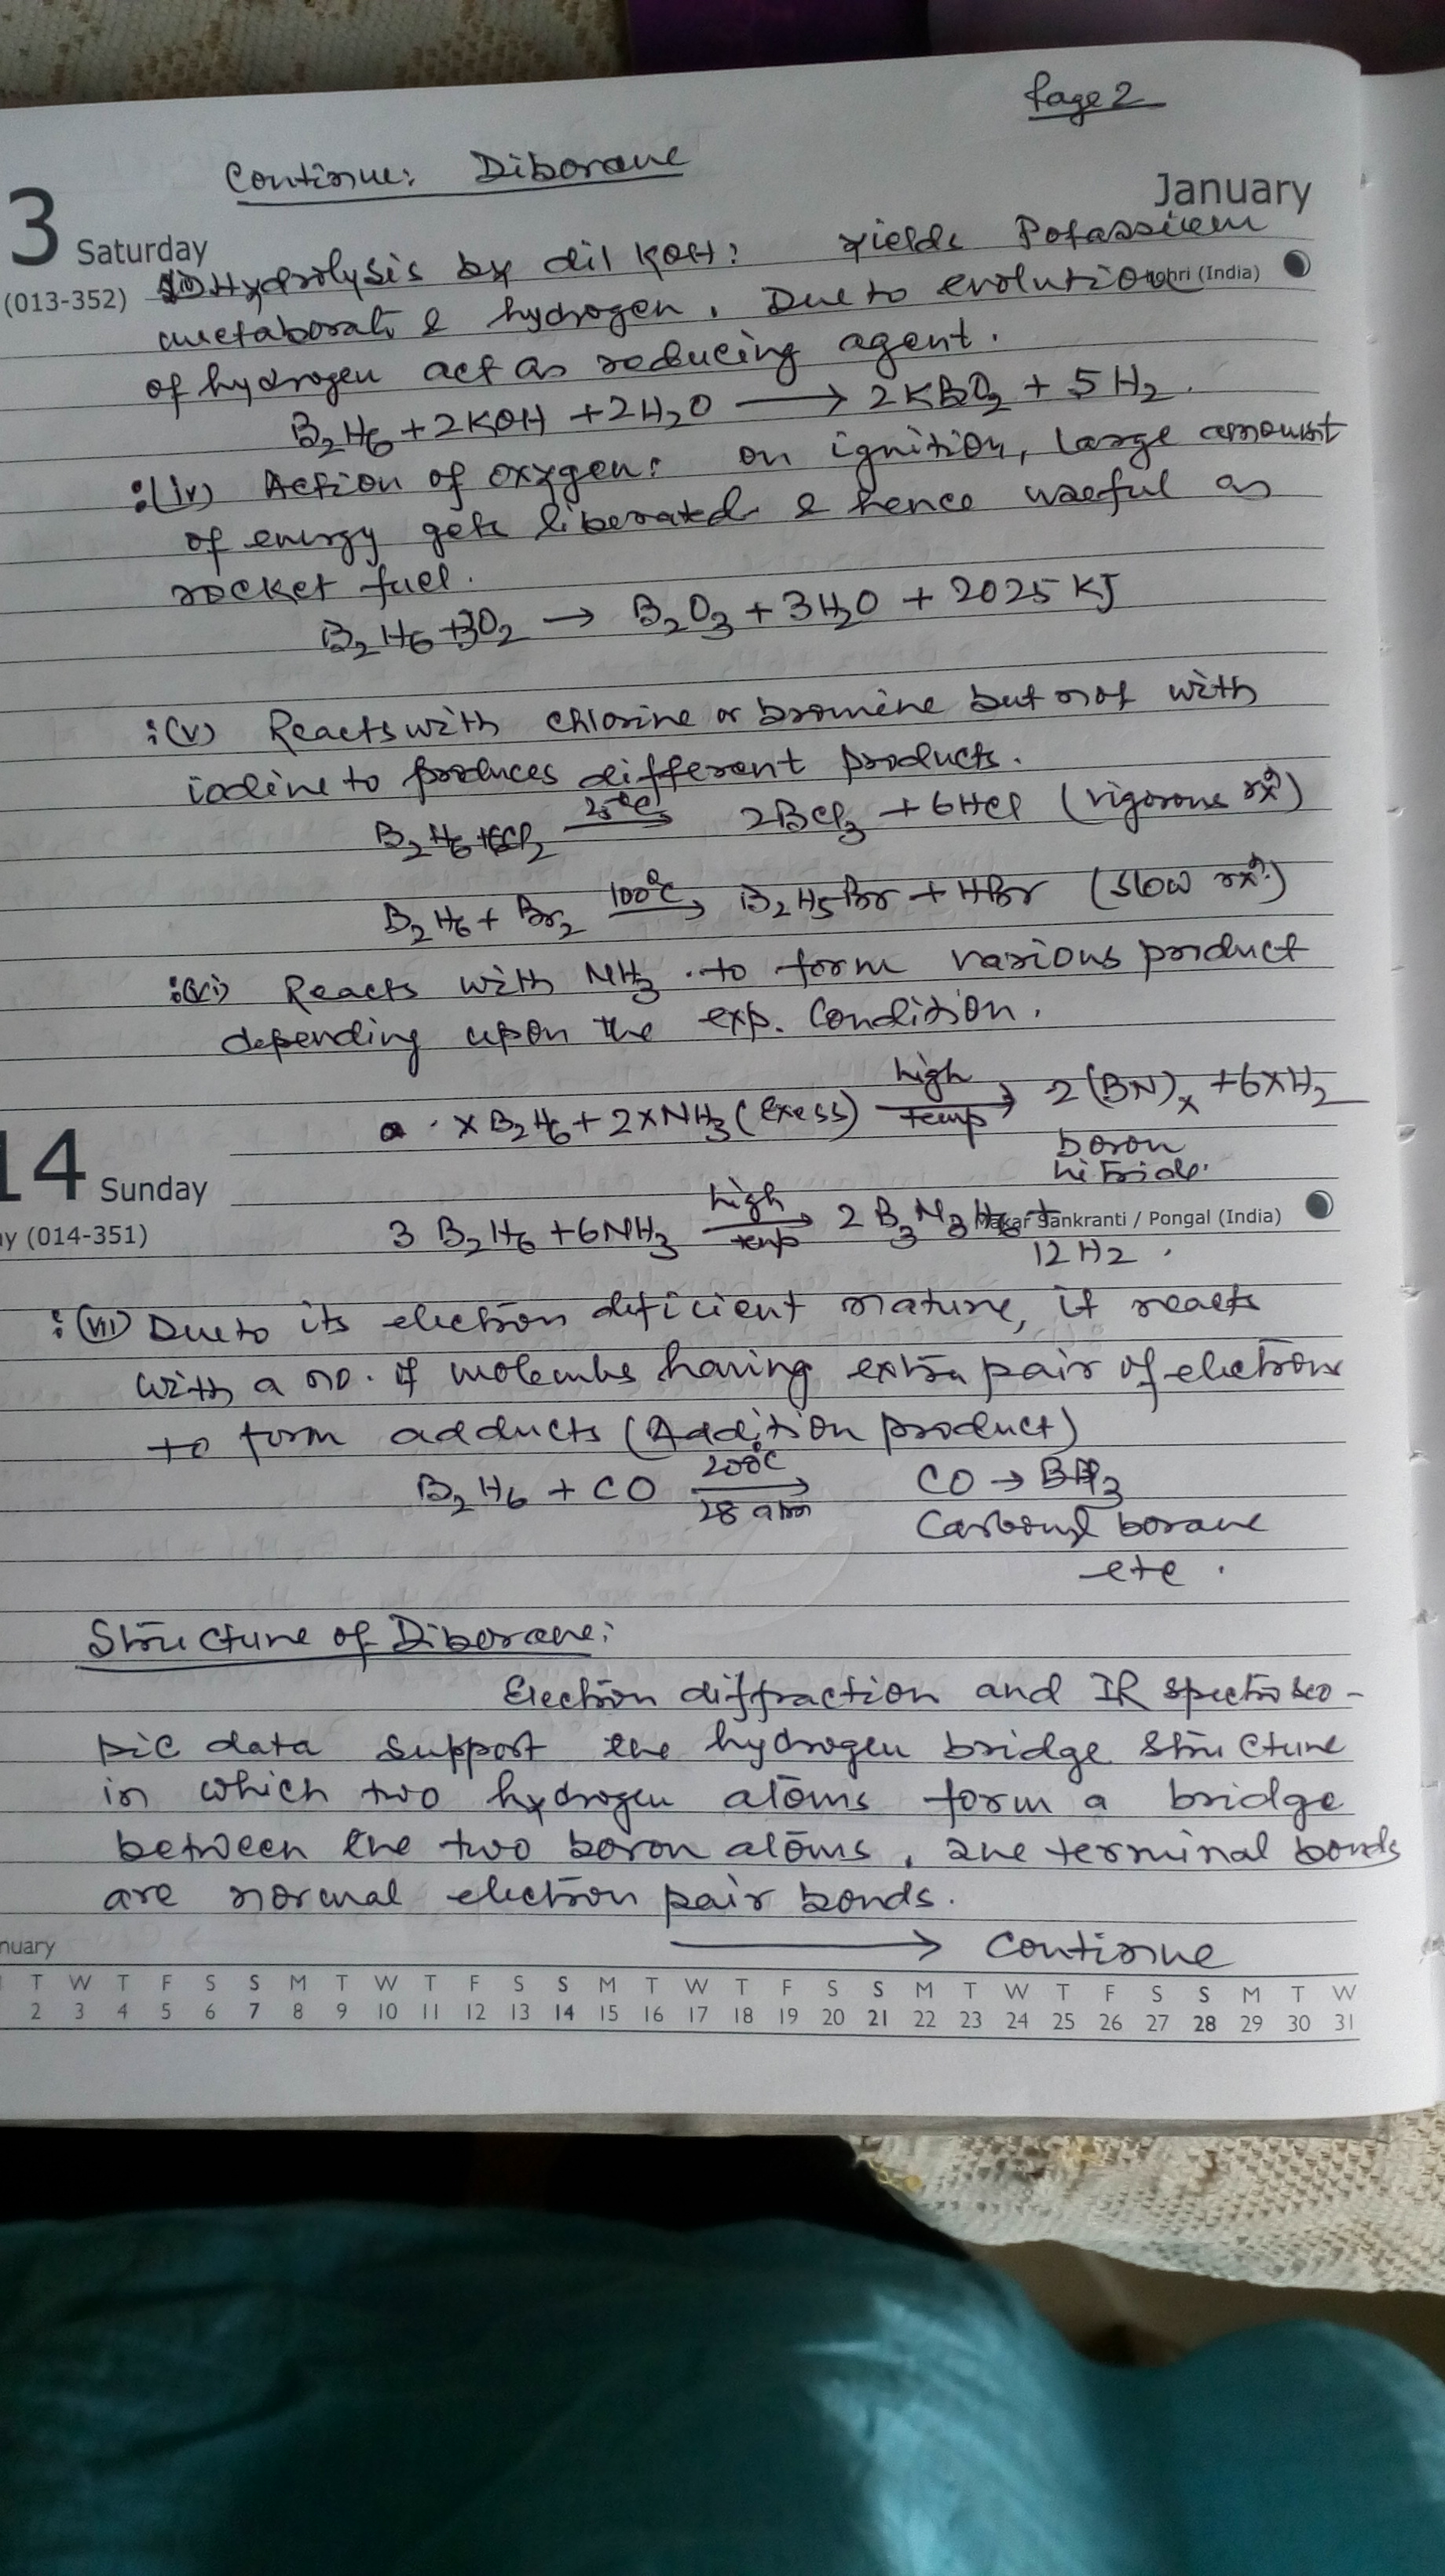 Page 2
Continue: Diborane
January
3 Saturday
(013-352)
Lohri (India)
Hydrolysis by dil KOH: yields Potassium
metaborate & hydrogen. Due to evolution
of hydrogen act as reducing agent.
B₂H₆ + 2KOH + 2H₂O ⟶ 2KBO₂ + 5H₂.
:(iv) Action of oxygen: on ignition, large amount
of energy gets liberated & hence useful as
rocket fuel.
B₂H₆ + 3O₂ → B₂O₃ + 3H₂O + 2025 KJ
:(v) Reacts with chlorine or bromine but not with
iodine to produces different products.
25°C
B₂H₆ + 6Cl₂ ⟶ 2BCl₃ + 6HCl (vigorous rxⁿ)
100°C
B₂H₆ + Br₂ ⟶ B₂H₅Br + HBr (slow rxⁿ.)
:(vi) Reacts with NH₃ to form various product
depending upon the exp. Condition.
high
x B₂H₆ + 2xNH₃ (exess) ⟶ 2(BN)ₓ + 6xH₂
temp
boron
nitride.
14 Sunday
(014-351)
Makar Sankranti / Pongal (India)
high
3 B₂H₆ + 6NH₃ ⟶ 2 B₃N₃H₆ +
temp
12H₂.
:(vii) Due to its electron deficient nature, it reacts
with a no. of molecules having extra pair of electrons
to form adducts (Addition product)
200°C
B₂H₆ + CO ⟶ CO → BH₃
28 atm
Carbonyl borane
etc.
Structure of Diborane:
Electron diffraction and IR spectrosco-
pic data support the hydrogen bridge structure
in which two hydrogen atoms form a bridge
between the two boron atoms. The terminal bonds
are normal electron pair bonds.
⟶ Continue
nuary
T W T F S S M T W T F S S M T W T F S S M T W T F S S M T W
2 3 4 5 6 7 8 9 10 11 12 13 14 15 16 17 18 19 20 21 22 23 24 25 26 27 28 29 30 31